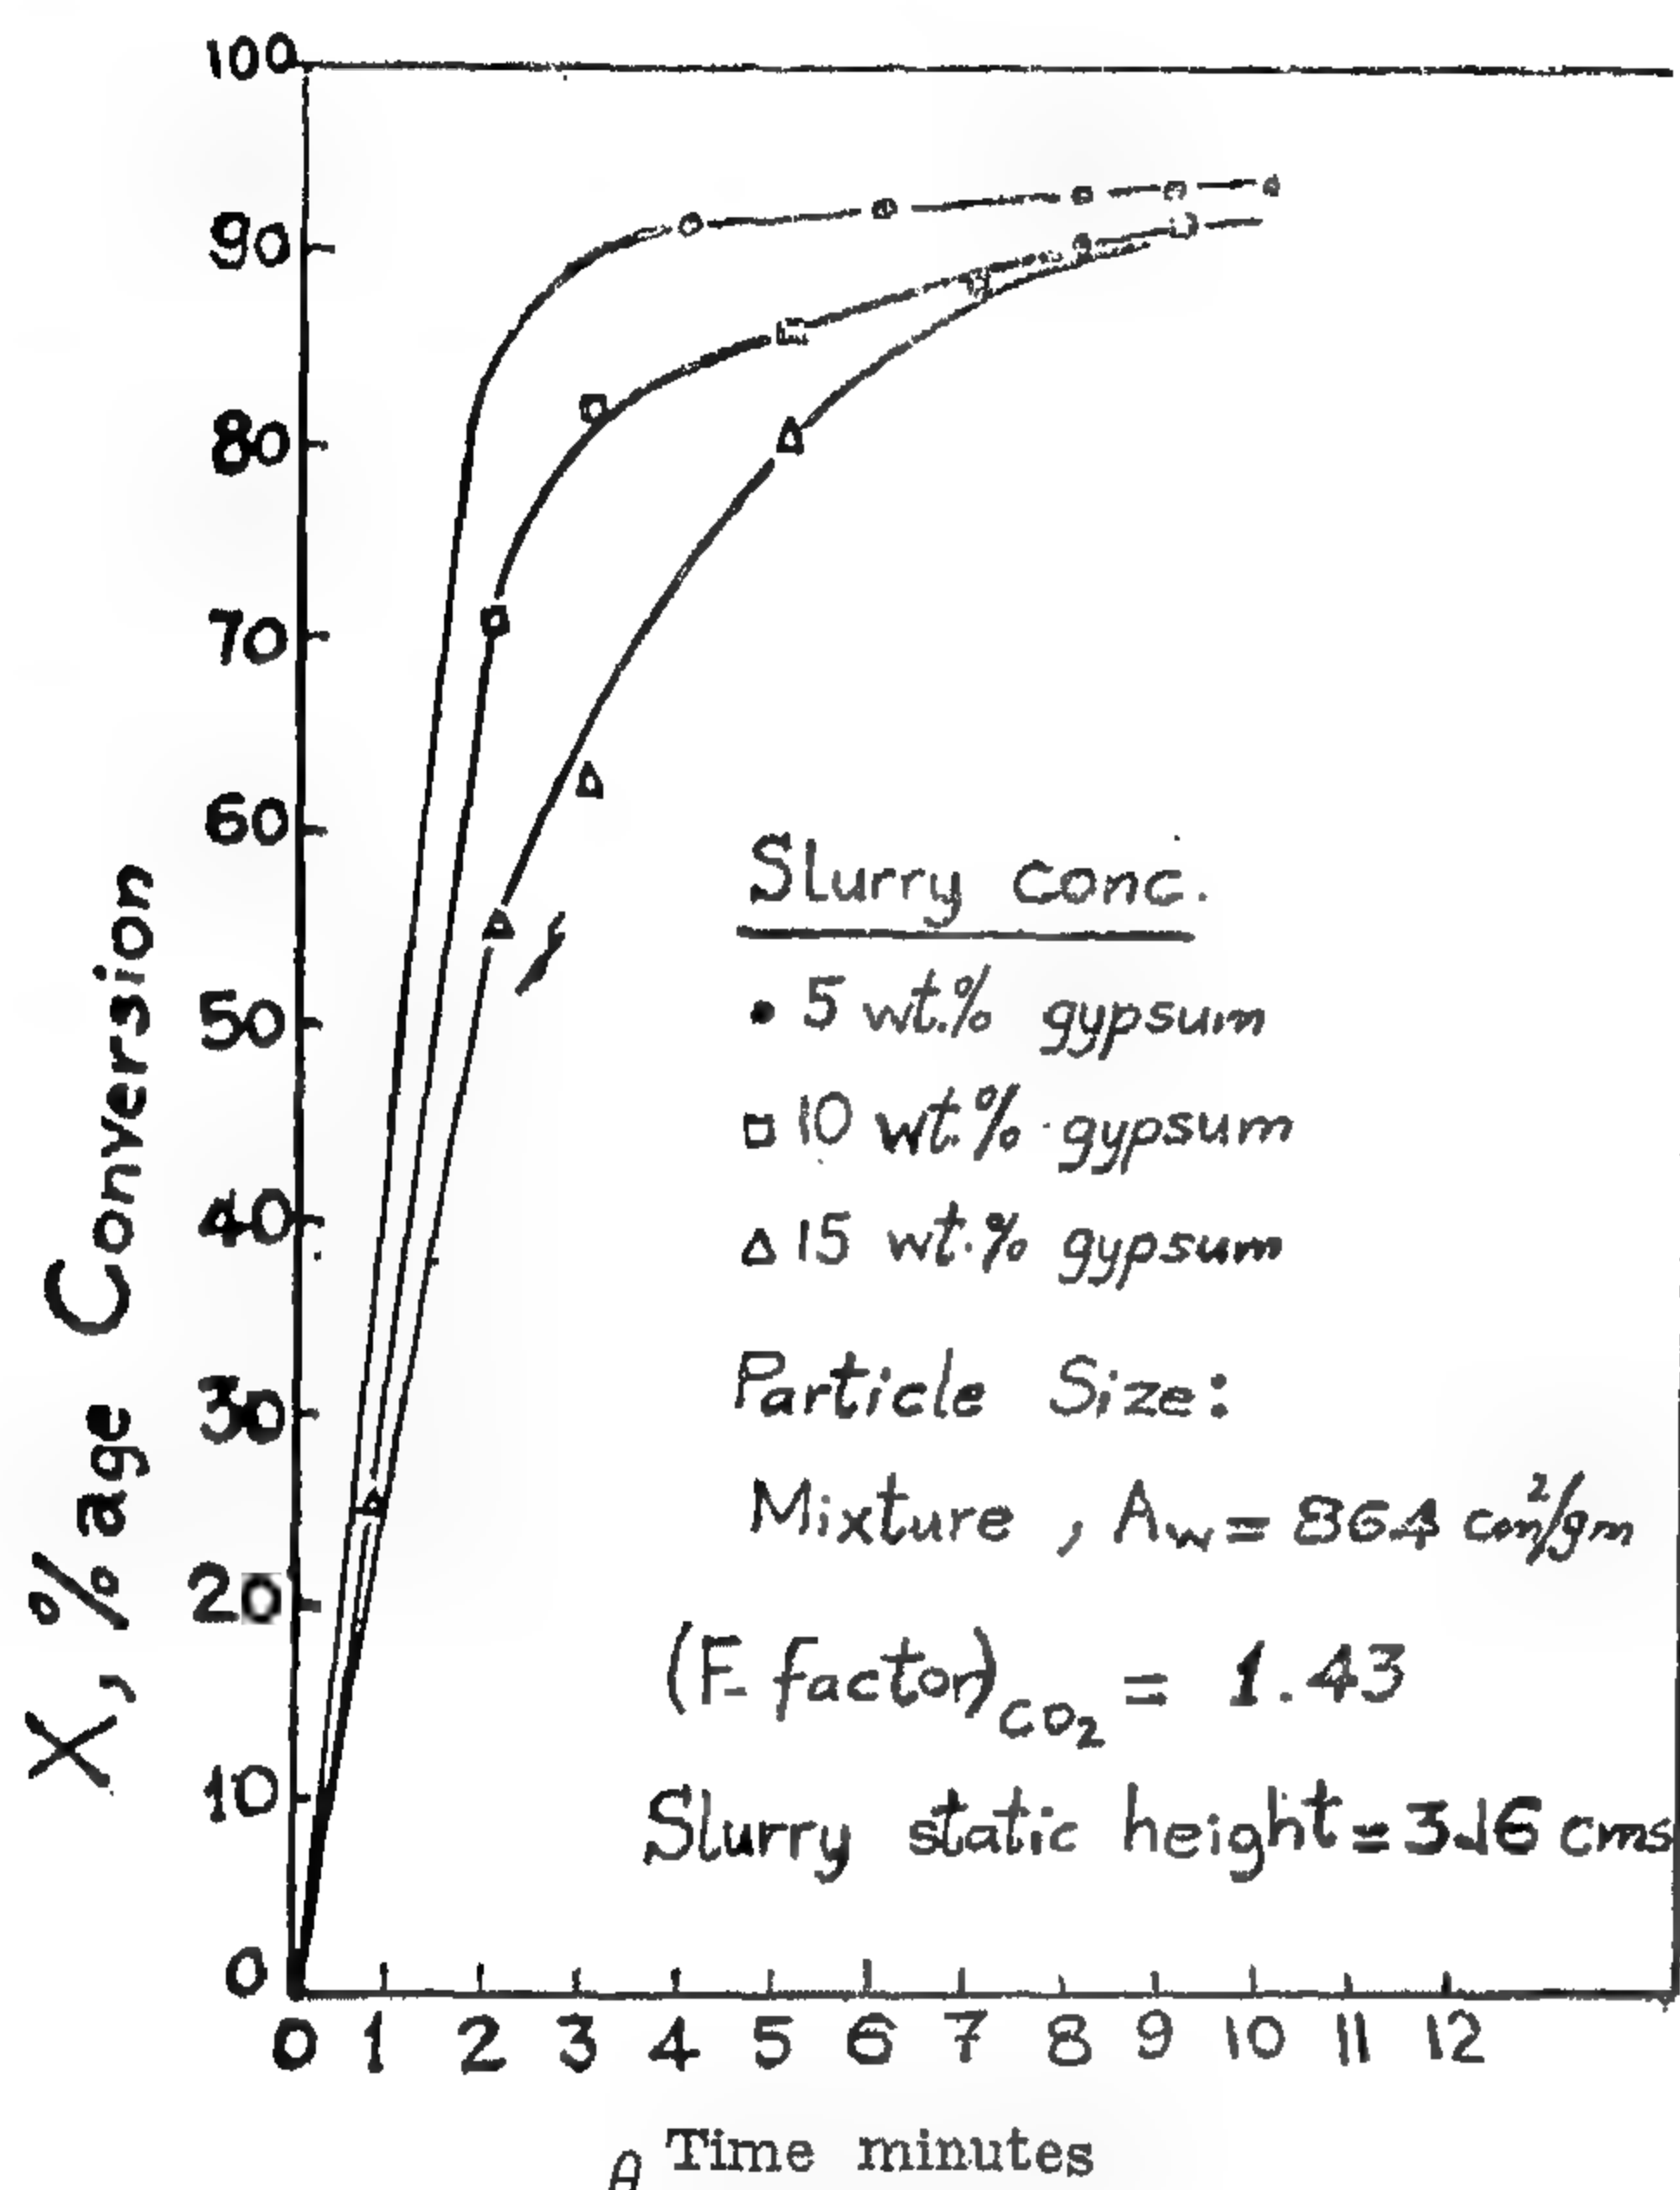 100
90
80
70
60
50
40
30
20
10
0
X, %age Conversion
Slurry conc.
• 5 wt.% gypsum
□ 10 wt.% gypsum
Δ 15 wt.% gypsum
Particle Size:
Mixture , Aw = 864 cm²/gm
(F-factor)CO₂ = 1.43
Slurry static height = 3.16 cms
0 1 2 3 4 5 6 7 8 9 10 11 12
θ Time minutes